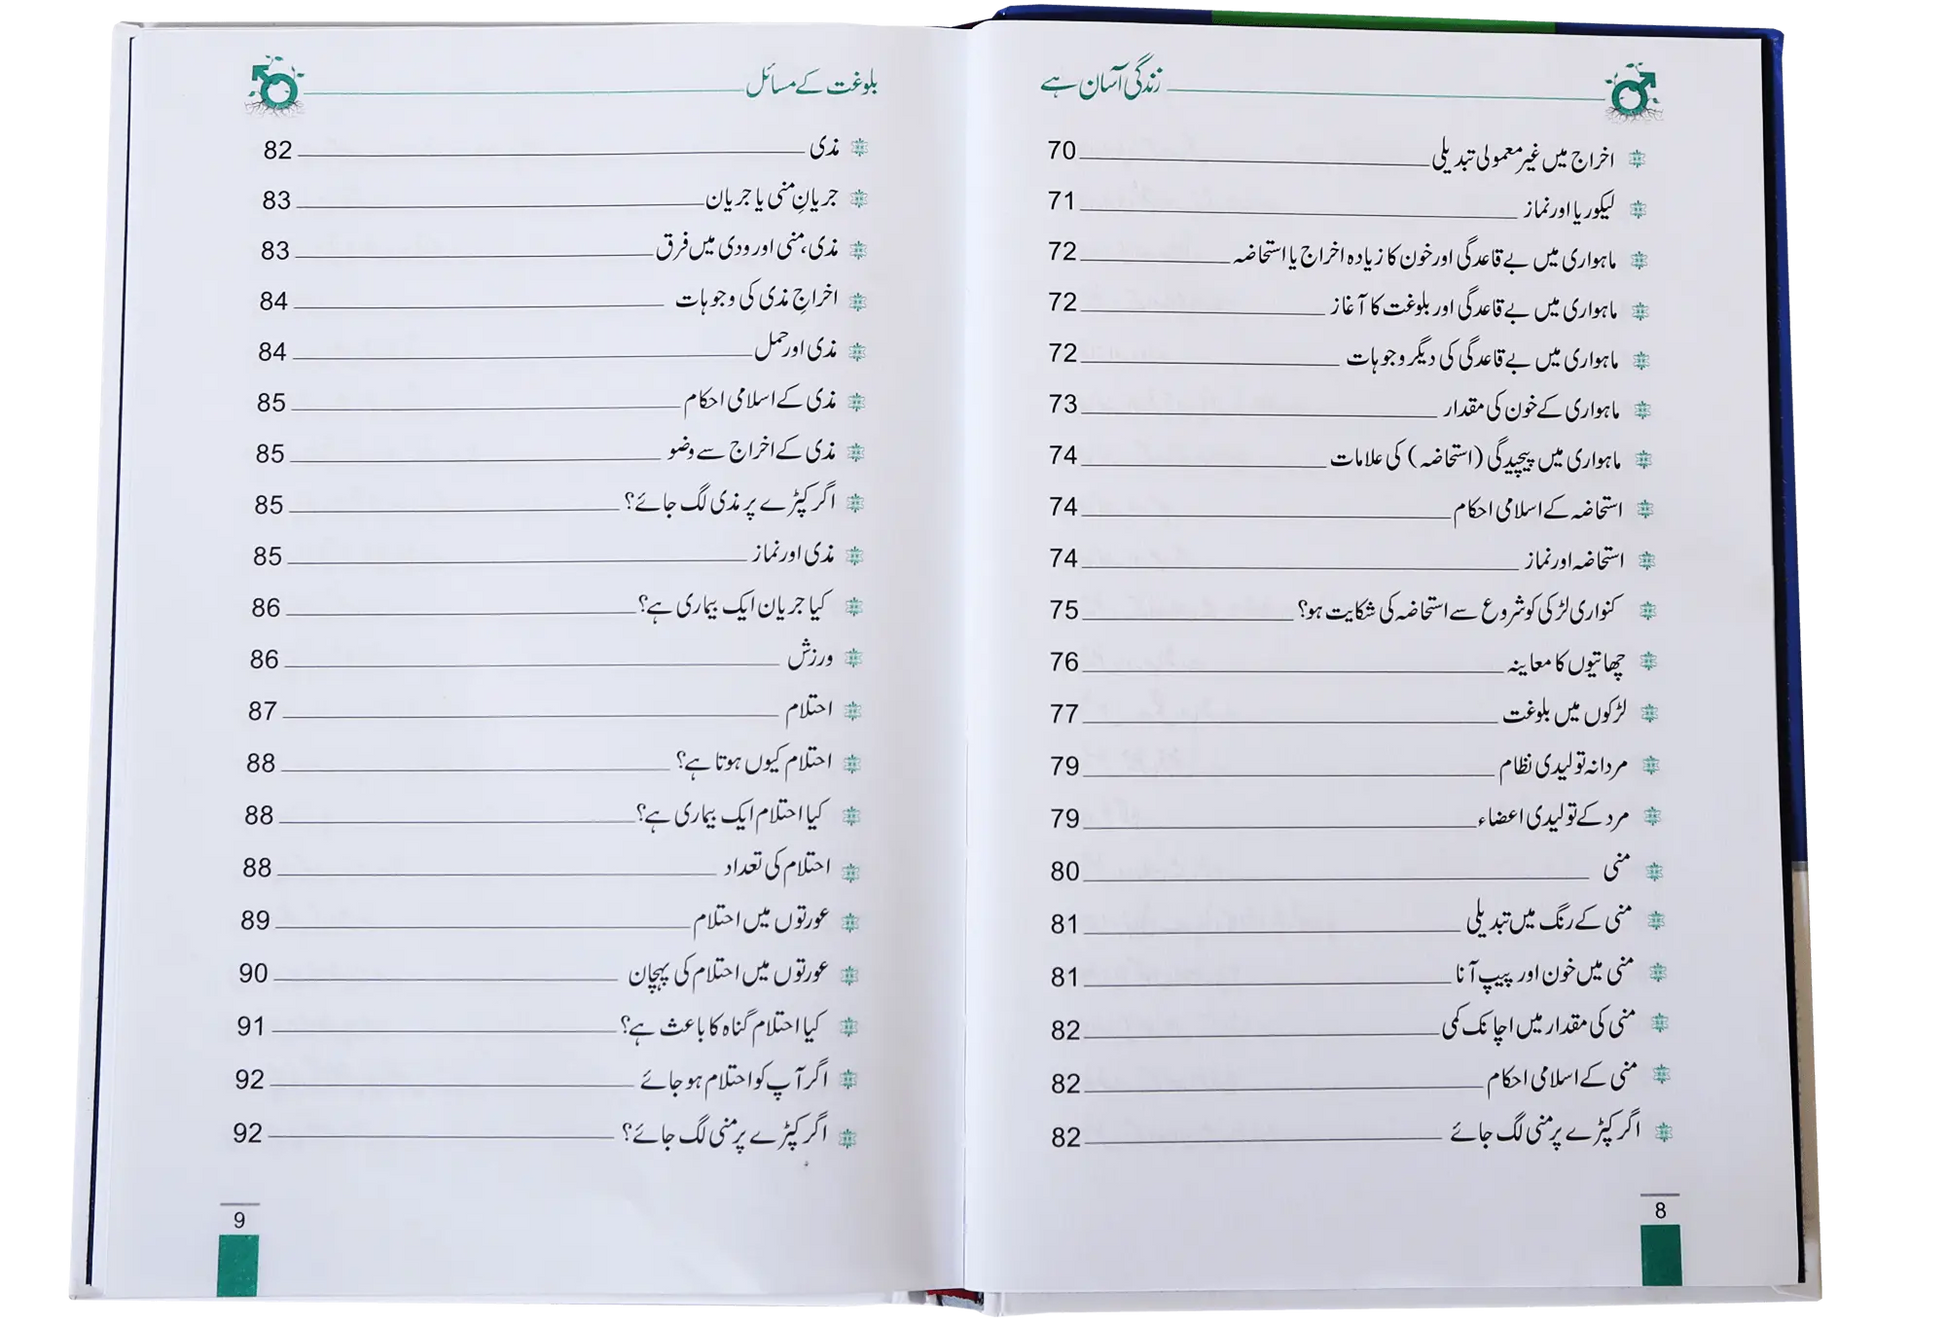 زندگی آسان ہے
اخراج میں غیر معمولی تبدیلی 70
لیکوریا اور نماز 71
ماہواری میں بے قاعدگی اور خون کا زیادہ اخراج یا استحاضہ 72
ماہواری میں بے قاعدگی اور بلوغت کا آغاز 72
ماہواری میں بے قاعدگی کی دیگر وجوہات 72
ماہواری کے خون کی مقدار 73
ماہواری میں پیچیدگی (استحاضہ) کی علامات 74
استحاضہ کے اسلامی احکام 74
استحاضہ اور نماز 74
کنواری لڑکی کو شروع سے استحاضہ کی شکایت ہو؟ 75
چھاتیوں کا معاینہ 76
لڑکوں میں بلوغت 77
مردانہ تولیدی نظام 79
مرد کے تولیدی اعضاء 79
منی 80
منی کے رنگ میں تبدیلی 81
منی میں خون اور پیپ آنا 81
منی کی مقدار میں اچانک کمی 82
منی کے اسلامی احکام 82
اگر کپڑے پر منی لگ جائے 82
8
بلوغت کے مسائل
مذی 82
جریانِ منی یا جریان 83
مذی، منی اور ودی میں فرق 83
اخراجِ مذی کی وجوہات 84
مذی اور حمل 84
مذی کے اسلامی احکام 85
مذی کے اخراج سے وضو 85
اگر کپڑے پر مذی لگ جائے؟ 85
مذی اور نماز 85
کیا جریان ایک بیماری ہے؟ 86
ورزش 86
احتلام 87
احتلام کیوں ہوتا ہے؟ 88
کیا احتلام ایک بیماری ہے؟ 88
احتلام کی تعداد 88
عورتوں میں احتلام 89
عورتوں میں احتلام کی پہچان 90
کیا احتلام گناہ کا باعث ہے؟ 91
اگر آپ کو احتلام ہو جائے 92
اگر کپڑے پر منی لگ جائے؟ 92
9